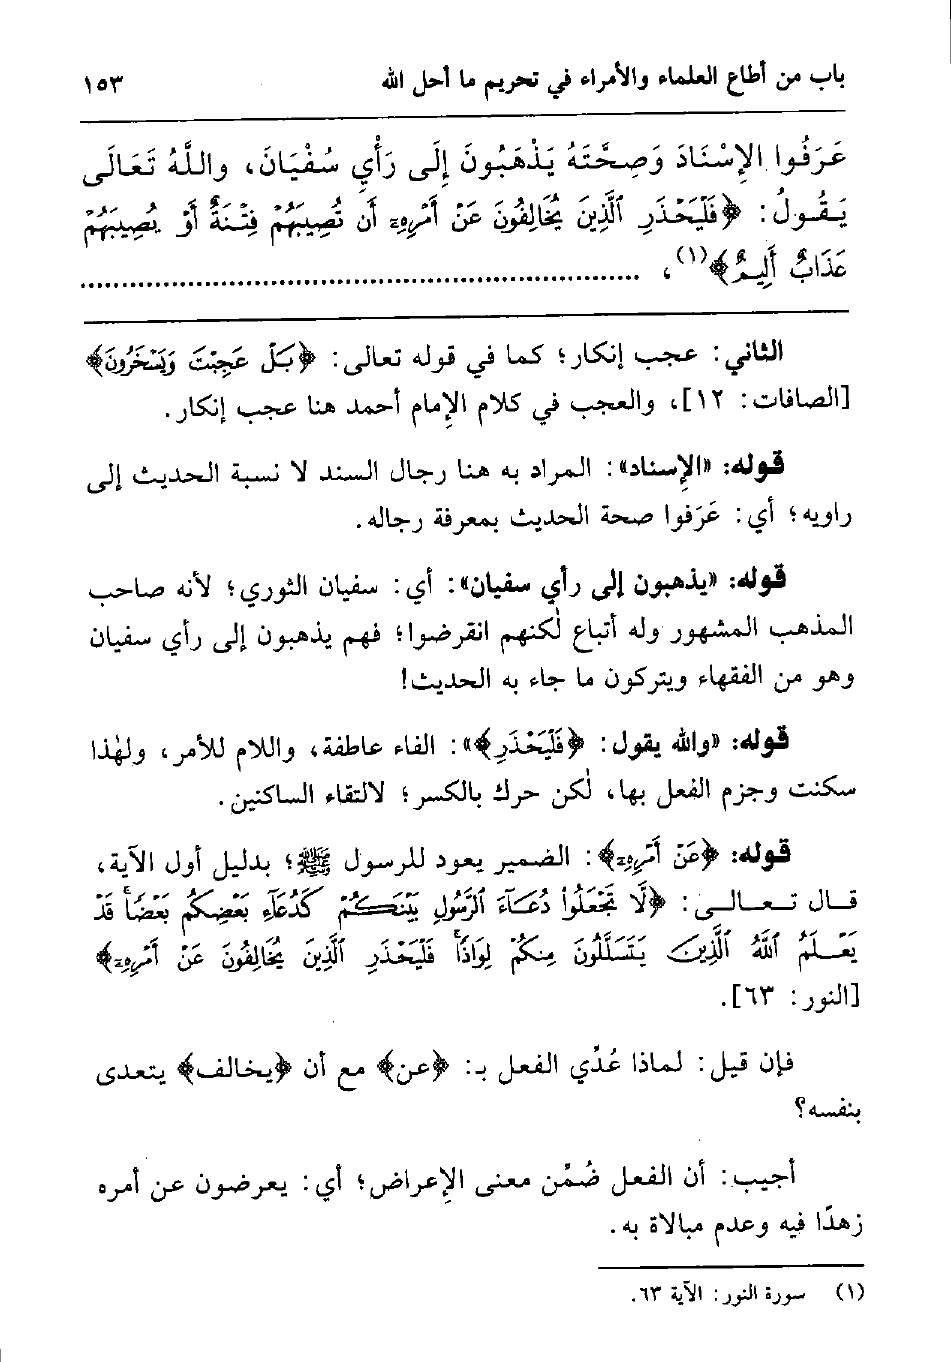 باب من أطاع العلماء والأمراء في تحريم ما أحل الله ١٥٣
عَرَفُوا الإِسْنَادَ وَصِحَّتَهُ يَذْهَبُونَ إِلَى رَأْيِ سُفْيَانَ، واللَّهُ تَعَالَى
يَقُولُ: ﴿فَلْيَحْذَرِ ٱلَّذِينَ يُخَالِفُونَ عَنْ أَمْرِهِۦٓ أَن تُصِيبَهُمْ فِتْنَةٌ أَوْ يُصِيبَهُمْ
عَذَابٌ أَلِيمٌ﴾(١)، ......................................................
الثاني: عجب إنكار؛ كما في قوله تعالى: ﴿بَلْ عَجِبْتَ وَيَسْخَرُونَ﴾
[الصافات: ١٢]، والعجب في كلام الإمام أحمد هنا عجب إنكار.
قوله: «الإسناد»: المراد به هنا رجال السند لا نسبة الحديث إلى
راويه؛ أي: عَرَفوا صحة الحديث بمعرفة رجاله.
قوله: «يذهبون إلى رأي سفيان»: أي: سفيان الثوري؛ لأنه صاحب
المذهب المشهور وله أتباع لٰكنهم انقرضوا؛ فهم يذهبون إلى رأي سفيان
وهو من الفقهاء ويتركون ما جاء به الحديث!
قوله: «والله يقول: ﴿فَلْيَحْذَرِ﴾»: الفاء عاطفة، واللام للأمر، ولهٰذا
سكنت وجزم الفعل بها، لٰكن حرك بالكسر؛ لالتقاء الساكنين.
قوله: ﴿عَنْ أَمْرِهِۦٓ﴾: الضمير يعود للرسول ﷺ؛ بدليل أول الآية،
قال تعالى: ﴿لَّا تَجْعَلُوا۟ دُعَآءَ ٱلرَّسُولِ بَيْنَكُمْ كَدُعَآءِ بَعْضِكُم بَعْضًا ۚ قَدْ
يَعْلَمُ ٱللَّهُ ٱلَّذِينَ يَتَسَلَّلُونَ مِنكُمْ لِوَاذًا ۚ فَلْيَحْذَرِ ٱلَّذِينَ يُخَالِفُونَ عَنْ أَمْرِهِۦٓ﴾
[النور: ٦٣].
فإن قيل: لماذا عُدِّي الفعل بـ: ﴿عن﴾ مع أن ﴿يخالف﴾ يتعدى
بنفسه؟
أجيب: أن الفعل ضُمِّن معنى الإعراض؛ أي: يعرضون عن أمره
زهدًا فيه وعدم مبالاة به.
(١) سورة النور: الآية ٦٣.